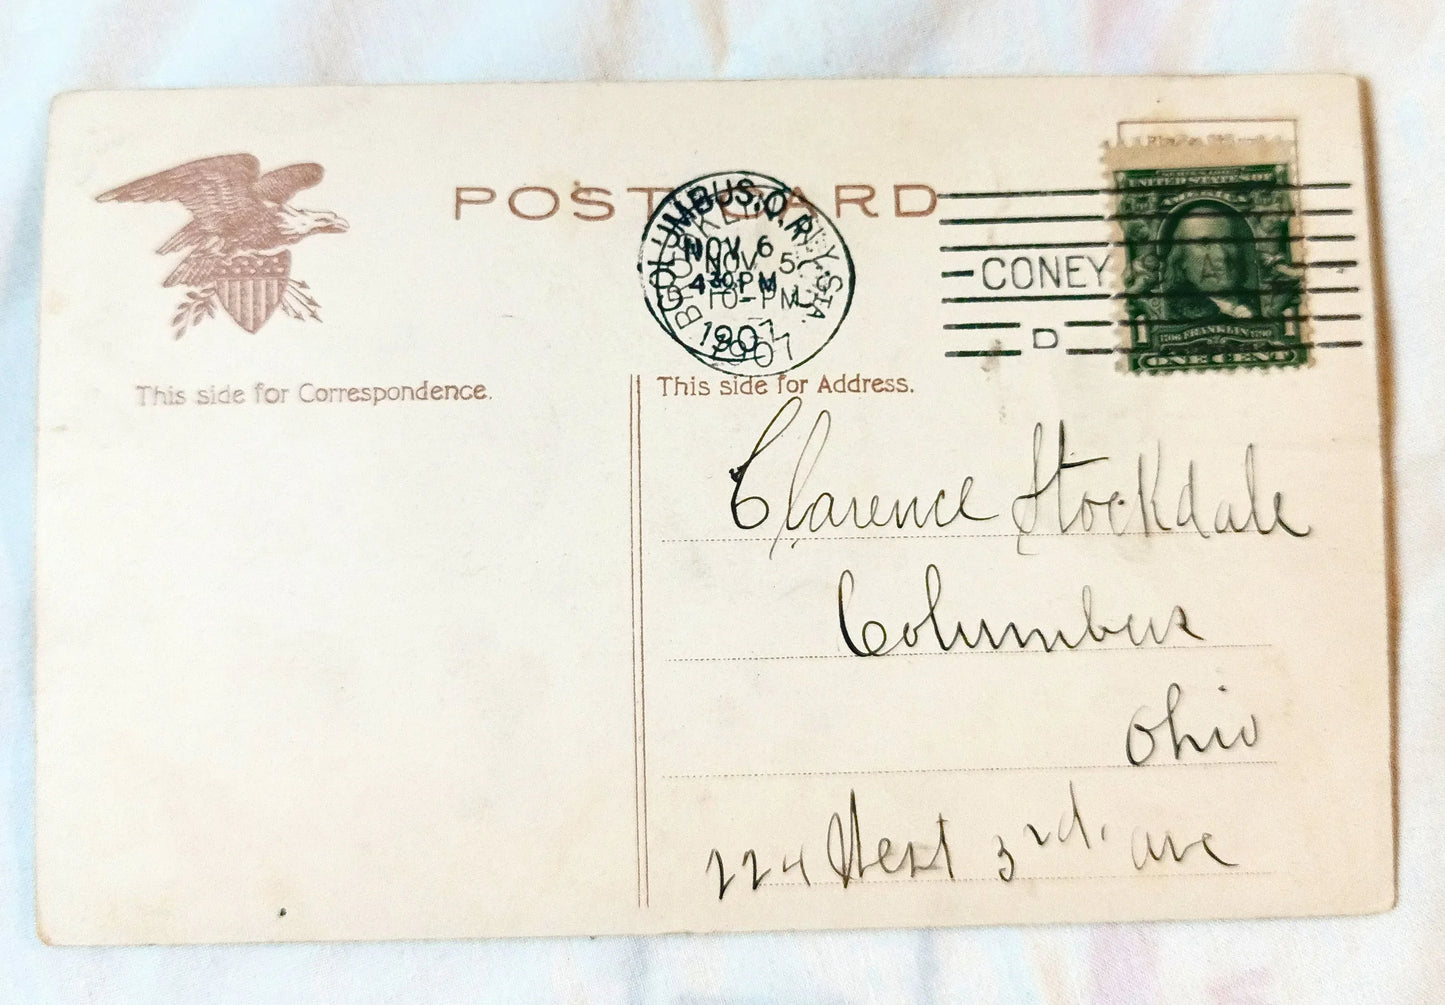 POST CARD
COLUMBUS, O. REC'D.
NOV 6
430 PM
1907
BROOKLYN, N.Y. STA.
NOV 5
10-PM
1907
CONEY ISLAND
D
UNITED STATES OF AMERICA
FRANKLIN
1 1
ONE CENT
This side for Correspondence.
This side for Address.
Clarence Stockdale
Columbus
Ohio
224 West 3rd. ave